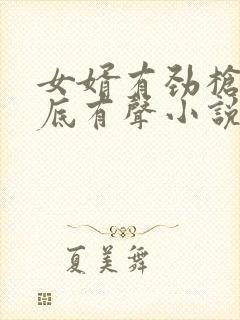 女婿有劲槍
底有聲小說
夏美舞